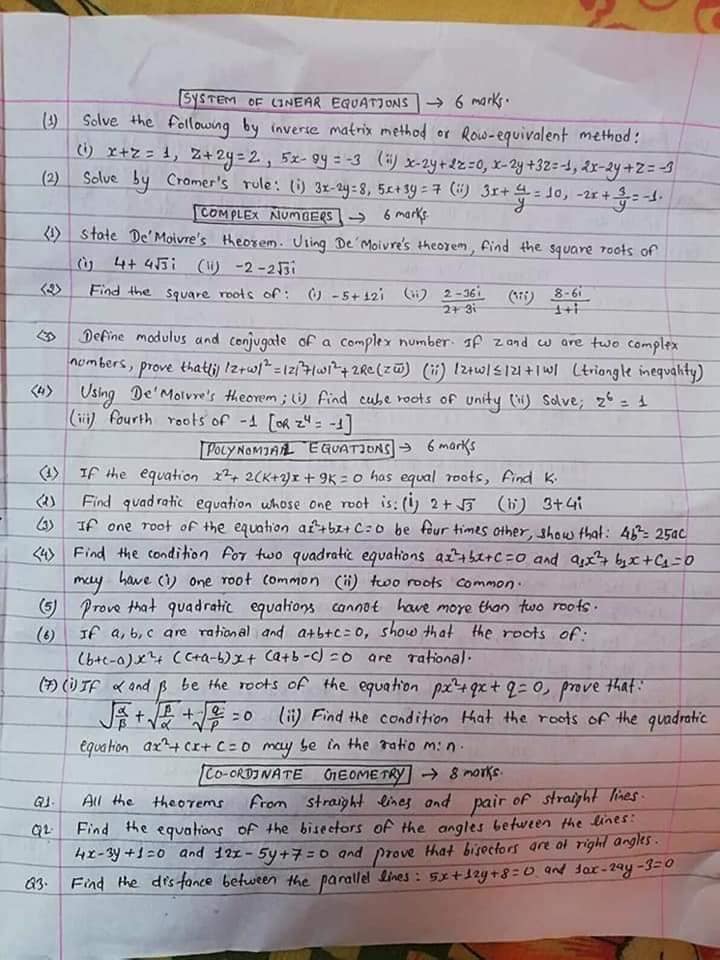 SYSTEM OF LINEAR EQUATIONS → 6 marks.
(1) Solve the following by inverse matrix method or Row-equivalent method:
(i) x+z=1, z+2y=2, 5x-9y=-3 (ii) x-2y+2z=0, x-2y+3z=-1, 2x-2y+z=-3
(2) Solve by Cramer's rule: (i) 3x-2y=8, 5x+3y=7 (ii) 3x+4/y=10, -2x+3/y=-1.
COMPLEX NUMBERS → 6 marks
<1> State De'Moivre's theorem. Using De'Moivre's theorem, find the square roots of
(i) 4+4√3i (ii) -2-2√3i
<2> Find the square roots of: (i) -5+12i (ii) (2-36i)/(2+3i) (iii) (8-6i)/(1+i)
<3> Define modulus and conjugate of a complex number. If z and w are two complex
numbers, prove that (i) |z+w|²=|z|²+|w|²+2Re(zw̅) (ii) |z+w|≤|z|+|w| (triangle inequality)
<4> Using De'Moivre's theorem; (i) find cube roots of unity (ii) Solve; z⁶=1
(iii) fourth roots of -1 [OR z⁴=-1]
POLYNOMIAL EQUATIONS → 6 marks
<1> If the equation x²+2(K+2)x+9K=0 has equal roots, find K.
<2> Find quadratic equation whose one root is: (i) 2+√3 (ii) 3+4i
<3> If one root of the equation ax²+bx+c=0 be four times other, show that: 4b²=25ac
<4> Find the condition for two quadratic equations ax²+bx+c=0 and a₁x²+b₁x+c₁=0
may have (i) one root common (ii) two roots common.
(5) Prove that quadratic equations cannot have more than two roots.
(6) If a, b, c are rational and a+b+c=0, show that the roots of:
(b+c-a)x²+(c+a-b)x+(a+b-c)=0 are rational.
(7) (i) If α and β be the roots of the equation px²+qx+q=0, prove that:
√(α/β)+√(β/α)+√(q/p)=0 (ii) Find the condition that the roots of the quadratic
equation ax²+cx+c=0 may be in the ratio m:n.
CO-ORDINATE GEOMETRY → 8 marks.
Q1. All the theorems from straight lines and pair of straight lines.
Q2. Find the equations of the bisectors of the angles between the lines:
4x-3y+1=0 and 12x-5y+7=0 and prove that bisectors are at right angles.
Q3. Find the distance between the parallel lines: 5x+12y+8=0 and 10x-24y-3=0